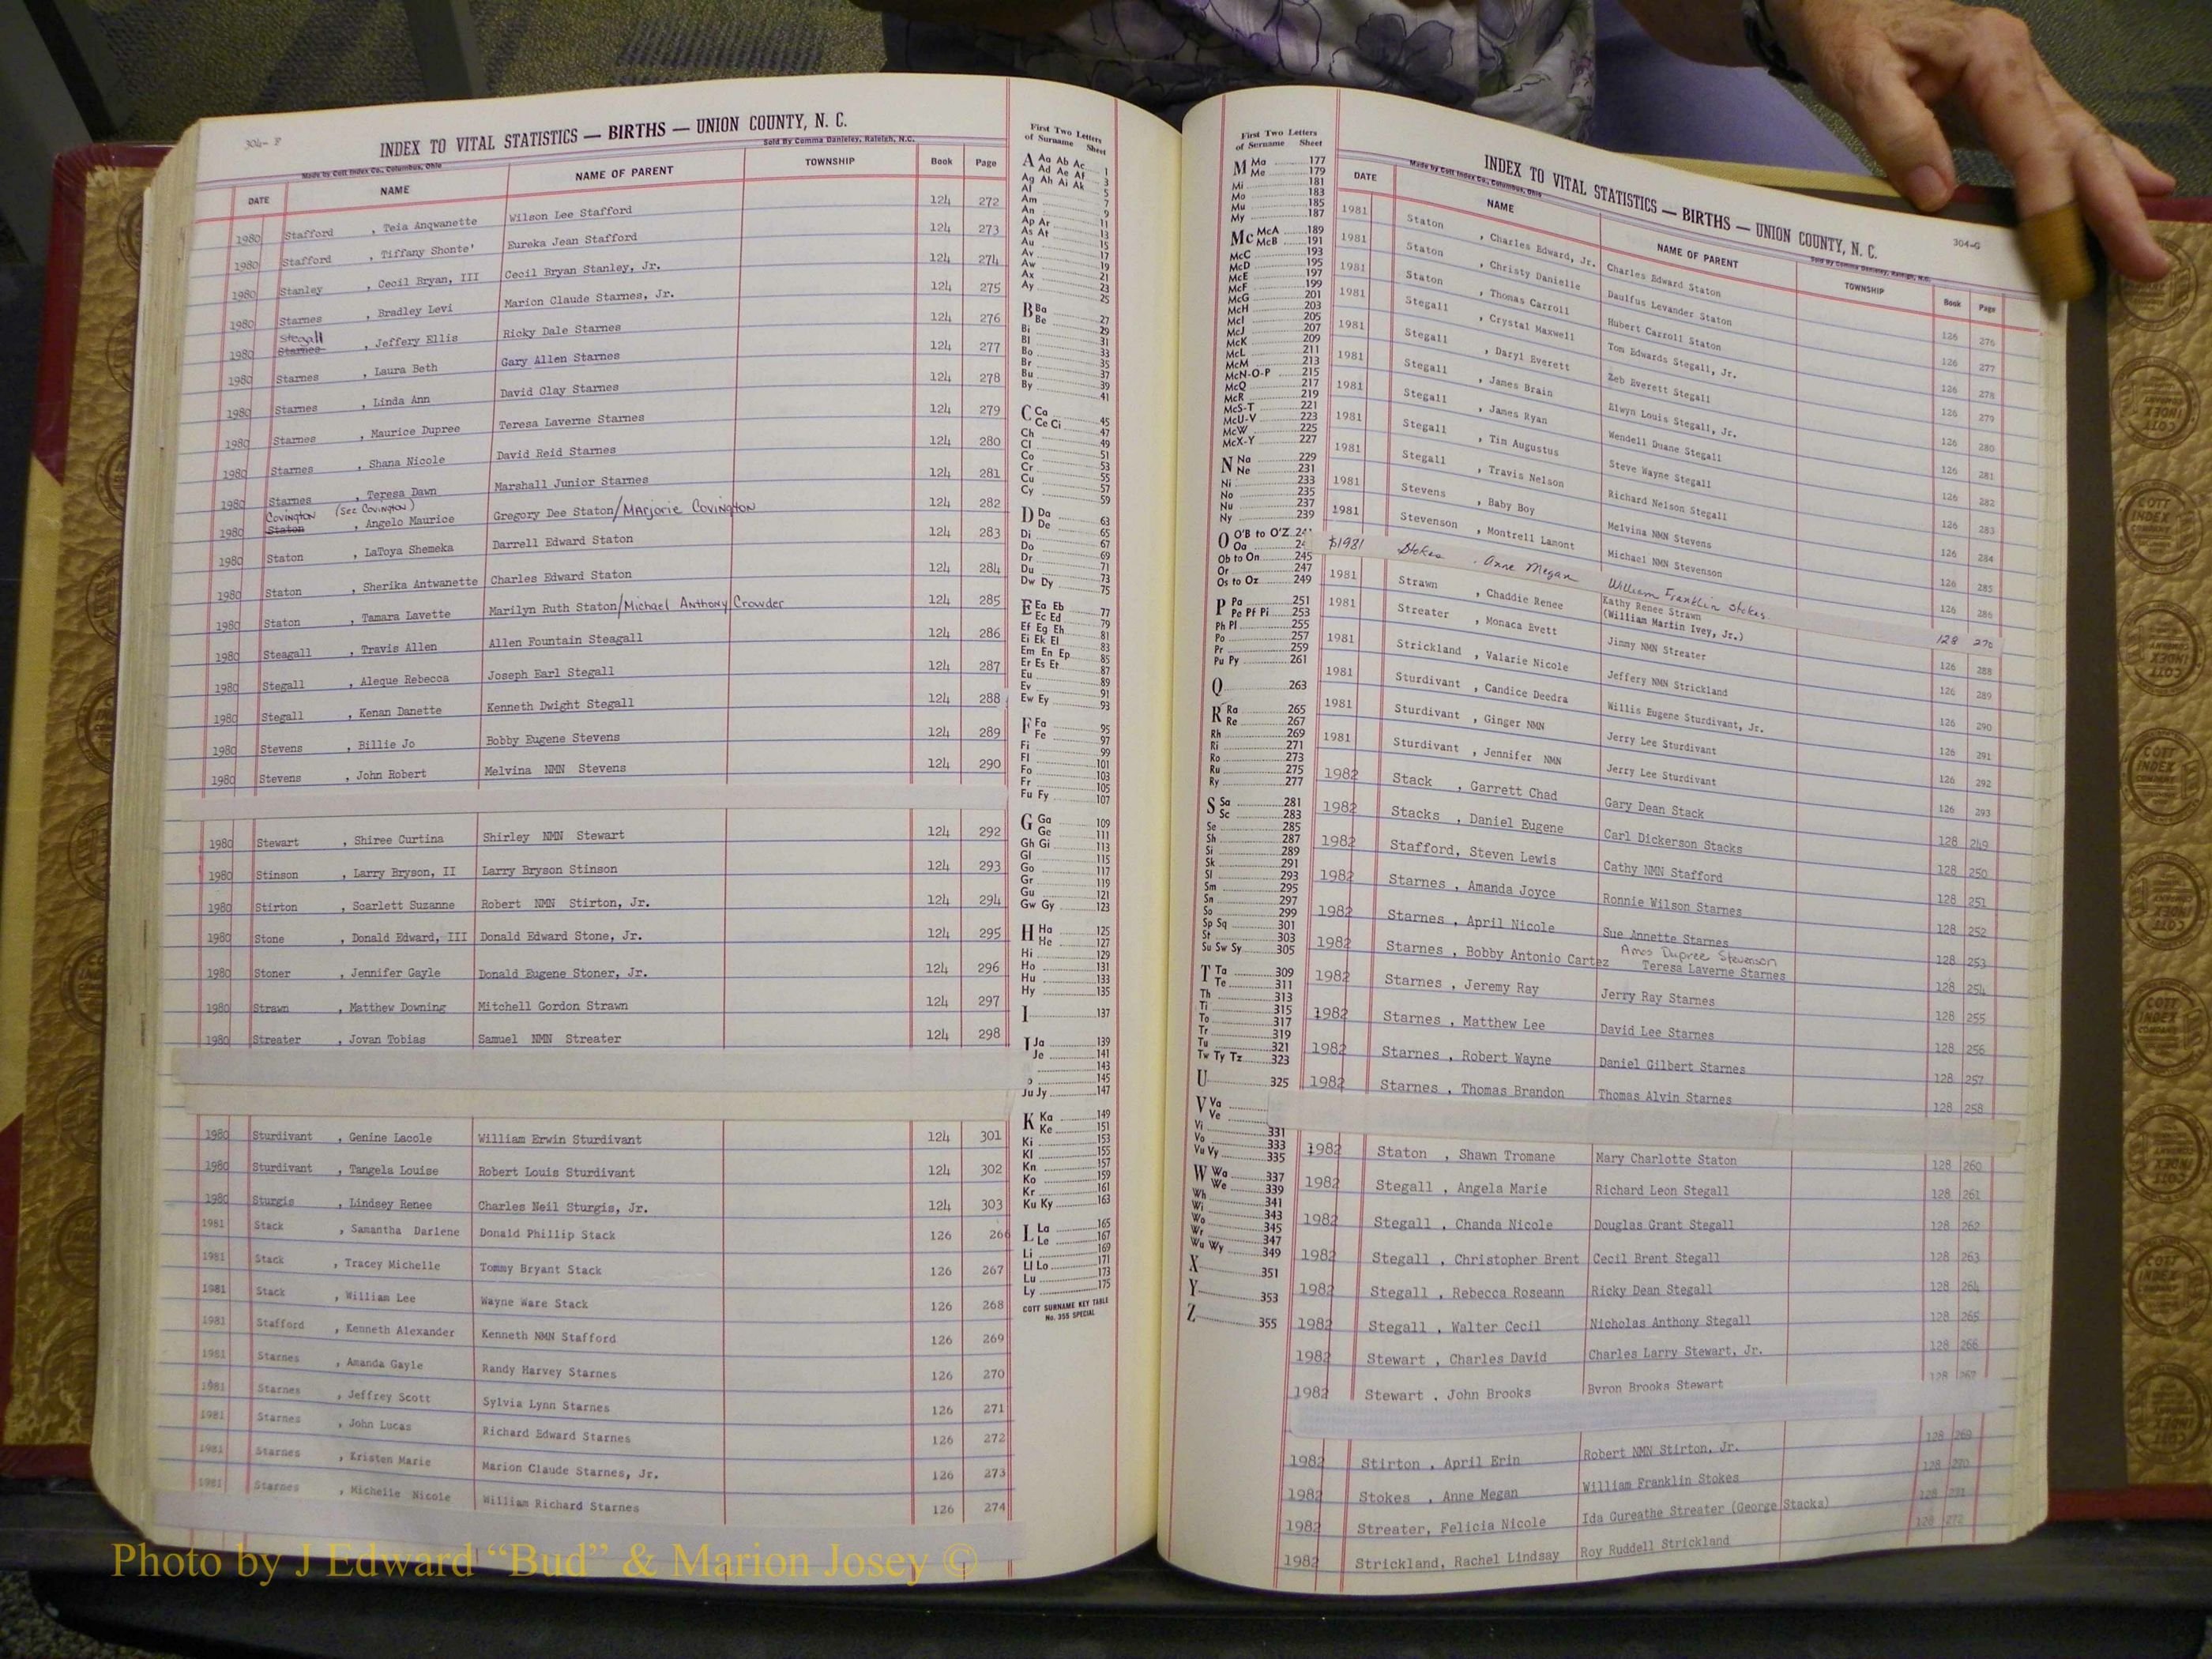 304-F
INDEX TO VITAL STATISTICS — BIRTHS — UNION COUNTY, N. C.
Made by Cott Index Co., Columbus, Ohio Sold By Comma Danieley, Raleigh, N.C.
DATE NAME NAME OF PARENT TOWNSHIP Book Page
1980 Stafford , Teia Anqwanette Wilson Lee Stafford 124 272
1980 Stafford , Tiffany Shonte' Eureka Jean Stafford 124 273
1980 Stanley , Cecil Bryan, III Cecil Bryan Stanley, Jr. 124 274
1980 Starnes , Bradley Levi Marion Claude Starnes, Jr. 124 275
Stegall
1980 Starnes , Jeffery Ellis Ricky Dale Starnes 124 276
1980 Starnes , Laura Beth Gary Allen Starnes 124 277
1980 Starnes , Linda Ann David Clay Starnes 124 278
1980 Starnes , Maurice Dupree Teresa Laverne Starnes 124 279
1980 Starnes , Shana Nicole David Reid Starnes 124 280
1980 Starnes , Teresa Dawn Marshall Junior Starnes 124 281
Covington (See Covington)
1980 Staton , Angelo Maurice Gregory Dee Staton/Marjorie Covington 124 282
1980 Staton , LaToya Shemeka Darrell Edward Staton 124 283
1980 Staton , Sherika Antwanette Charles Edward Staton 124 284
1980 Staton , Tamara Lavette Marilyn Ruth Staton/Michael Anthony Crowder 124 285
1980 Steagall , Travis Allen Allen Fountain Steagall 124 286
1980 Stegall , Aleque Rebecca Joseph Earl Stegall 124 287
1980 Stegall , Kenan Danette Kenneth Dwight Stegall 124 288
1980 Stevens , Billie Jo Bobby Eugene Stevens 124 289
1980 Stevens , John Robert Melvina NMN Stevens 124 290
1980 Stewart , Shiree Curtina Shirley NMN Stewart 124 292
1980 Stinson , Larry Bryson, II Larry Bryson Stinson 124 293
1980 Stirton , Scarlett Suzanne Robert NMN Stirton, Jr. 124 294
1980 Stone , Donald Edward, III Donald Edward Stone, Jr. 124 295
1980 Stoner , Jennifer Gayle Donald Eugene Stoner, Jr. 124 296
1980 Strawn , Matthew Downing Mitchell Gordon Strawn 124 297
1980 Streater , Jovan Tobias Samuel NMN Streater 124 298
1980 Sturdivant , Genine Lacole William Erwin Sturdivant 124 301
1980 Sturdivant , Tangela Louise Robert Louis Sturdivant 124 302
1980 Sturgis , Lindsey Renee Charles Neil Sturgis, Jr. 124 303
1981 Stack , Samantha Darlene Donald Phillip Stack 126 266
1981 Stack , Tracey Michelle Tommy Bryant Stack 126 267
1981 Stack , William Lee Wayne Ware Stack 126 268
1981 Stafford , Kenneth Alexander Kenneth NMN Stafford 126 269
1981 Starnes , Amanda Gayle Randy Harvey Starnes 126 270
1981 Starnes , Jeffrey Scott Sylvia Lynn Starnes 126 271
1981 Starnes , John Lucas Richard Edward Starnes 126 272
1981 Starnes , Kristen Marie Marion Claude Starnes, Jr. 126 273
1981 Starnes , Michelle Nicole William Richard Starnes 126 274
First Two Letters
of Surname Sheet
A Aa Ab Ac 1
Ad Ae Af 3
Ag Ah Ai Ak 5
Al 7
Am 9
An 11
Ap Ar 13
As At 15
Au 17
Av 19
Aw 21
Ax 23
Ay 25
B Ba 27
Be 29
Bi 31
Bl 33
Bo 35
Br 37
Bu 39
By 41
C Ca 45
Ce Ci 47
Ch 49
Cl 51
Co 53
Cr 55
Cu 57
Cy 59
D Da 63
De 65
Di 67
Do 69
Dr 71
Du 73
Dw Dy 75
E Ea Eb 77
Ec Ed 79
Ef Eg Eh 81
Ei Ek El 83
Em En Ep 85
Er Es Et 87
Eu 89
Ev 91
Ew Ey 93
F Fa 95
Fe 97
Fi 99
Fl 101
Fo 103
Fr 105
Fu Fy 107
G Ga 109
Ge 111
Gh Gi 113
Gl 115
Go 117
Gr 119
Gu 121
Gw Gy 123
H Ha 125
He 127
Hi 129
Ho 131
Hu 133
Hy 135
I 137
J Ja 139
Je 141
143
145
Ju Jy 147
K Ka 149
Ke 151
Ki 153
Kl 155
Kn 157
Ko 159
Kr 161
Ku Ky 163
L La 165
Le 167
Li 169
Ll Lo 171
Lu 173
Ly 175
COTT SURNAME KEY TABLE
No. 355 SPECIAL
First Two Letters
of Surname Sheet
M Ma 177
Me 179
Mi 181
Mo 183
Mu 185
My 187
Mc McA 189
McB 191
McC 193
McD 195
McE 197
McF 199
McG 201
McH 203
McI 205
McJ 207
McK 209
McL 211
McM 213
McN-O-P 215
McQ 217
McR 219
McS-T 221
McU-V 223
McW 225
McX-Y 227
N Na 229
Ne 231
Ni 233
No 235
Nu 237
Ny 239
O O'B to O'Z
Oa
Ob to On 245
Or 247
Os to Oz 249
P Pa 251
Pe Pf Pi 253
Ph Pl 255
Po 257
Pr 259
Pu Py 261
Q 263
R Ra 265
Re 267
Rh 269
Ri 271
Ro 273
Ru 275
Ry 277
S Sa 281
Sc 283
Se 285
Sh 287
Si 289
Sk 291
Sl 293
Sm 295
Sn 297
So 299
Sp Sq 301
St 303
Su Sw Sy 305
T Ta 309
Te 311
Th 313
Ti 315
To 317
Tr 319
Tu 321
Tw Ty Tz 323
U 325
V Va
Ve
Vi 331
Vo 333
Vu Vy 335
W Wa 337
We 339
Wh 341
Wi 343
Wo 345
Wr 347
Wu Wy 349
X 351
Y 353
Z 355
304-G
INDEX TO VITAL STATISTICS — BIRTHS — UNION COUNTY, N. C.
Made by Cott Index Co., Columbus, Ohio Sold By Comma Danieley, Raleigh, N.C.
DATE NAME NAME OF PARENT TOWNSHIP Book Page
1981 Staton , Charles Edward, Jr. Charles Edward Staton 126 276
1981 Staton , Christy Danielle Daulfus Levander Staton 126 277
1981 Staton , Thomas Carroll Hubert Carroll Staton 126 278
1981 Stegall , Crystal Maxwell Tom Edwards Stegall, Jr. 126 279
1981 Stegall , Daryl Everett Zeb Everett Stegall 126 280
1981 Stegall , James Brain Elwyn Louis Stegall, Jr. 126 281
1981 Stegall , James Ryan Wendell Duane Stegall 126 282
1981 Stegall , Tim Augustus Steve Wayne Stegall 126 283
1981 Stegall , Travis Nelson Richard Nelson Stegall 126 284
1981 Stevens , Baby Boy Melvina NMN Stevens 126 285
1981 Stevenson , Montrell Lamont Michael NMN Stevenson 126 286
$1981 Stokes , Anne Megan William Franklin Stokes 128 270
1981 Strawn , Chaddie Renee Kathy Renee Strawn
(William Martin Ivey, Jr.) 126 288
1981 Streater , Monaca Evett Jimmy NMN Streater 126 289
1981 Strickland , Valarie Nicole Jeffery NMN Strickland 126 290
1981 Sturdivant , Candice Deedra Willis Eugene Sturdivant, Jr. 126 291
1981 Sturdivant , Ginger NMN Jerry Lee Sturdivant 126 292
1981 Sturdivant , Jennifer NMN Jerry Lee Sturdivant 126 293
1982 Stack , Garrett Chad Gary Dean Stack 128 249
1982 Stacks , Daniel Eugene Carl Dickerson Stacks 128 250
1982 Stafford, Steven Lewis Cathy NMN Stafford 128 251
1982 Starnes , Amanda Joyce Ronnie Wilson Starnes 128 252
1982 Starnes , April Nicole Sue Annette Starnes 128 253
Amos Dupree Stevenson
1982 Starnes , Bobby Antonio Cartez Teresa Laverne Starnes 128 254
1982 Starnes , Jeremy Ray Jerry Ray Starnes 128 255
1982 Starnes , Matthew Lee David Lee Starnes 128 256
1982 Starnes , Robert Wayne Daniel Gilbert Starnes 128 257
1982 Starnes , Thomas Brandon Thomas Alvin Starnes 128 258
1982 Staton , Shawn Tromane Mary Charlotte Staton 128 260
1982 Stegall , Angela Marie Richard Leon Stegall 128 261
1982 Stegall , Chanda Nicole Douglas Grant Stegall 128 262
1982 Stegall , Christopher Brent Cecil Brent Stegall 128 263
1982 Stegall , Rebecca Roseann Ricky Dean Stegall 128 264
1982 Stegall , Walter Cecil Nicholas Anthony Stegall 128 265
1982 Stewart , Charles David Charles Larry Stewart, Jr. 128 266
1982 Stewart , John Brooks Byron Brooks Stewart 128 267
1982 Stirton , April Erin Robert NMN Stirton, Jr. 128 269
1982 Stokes , Anne Megan William Franklin Stokes 128 270
1982 Streater, Felicia Nicole Ida Gureathe Streater (George Stacks) 128 271
1982 Strickland, Rachel Lindsay Roy Ruddell Strickland 128 272
Photo by J Edward “Bud” & Marion Josey ©